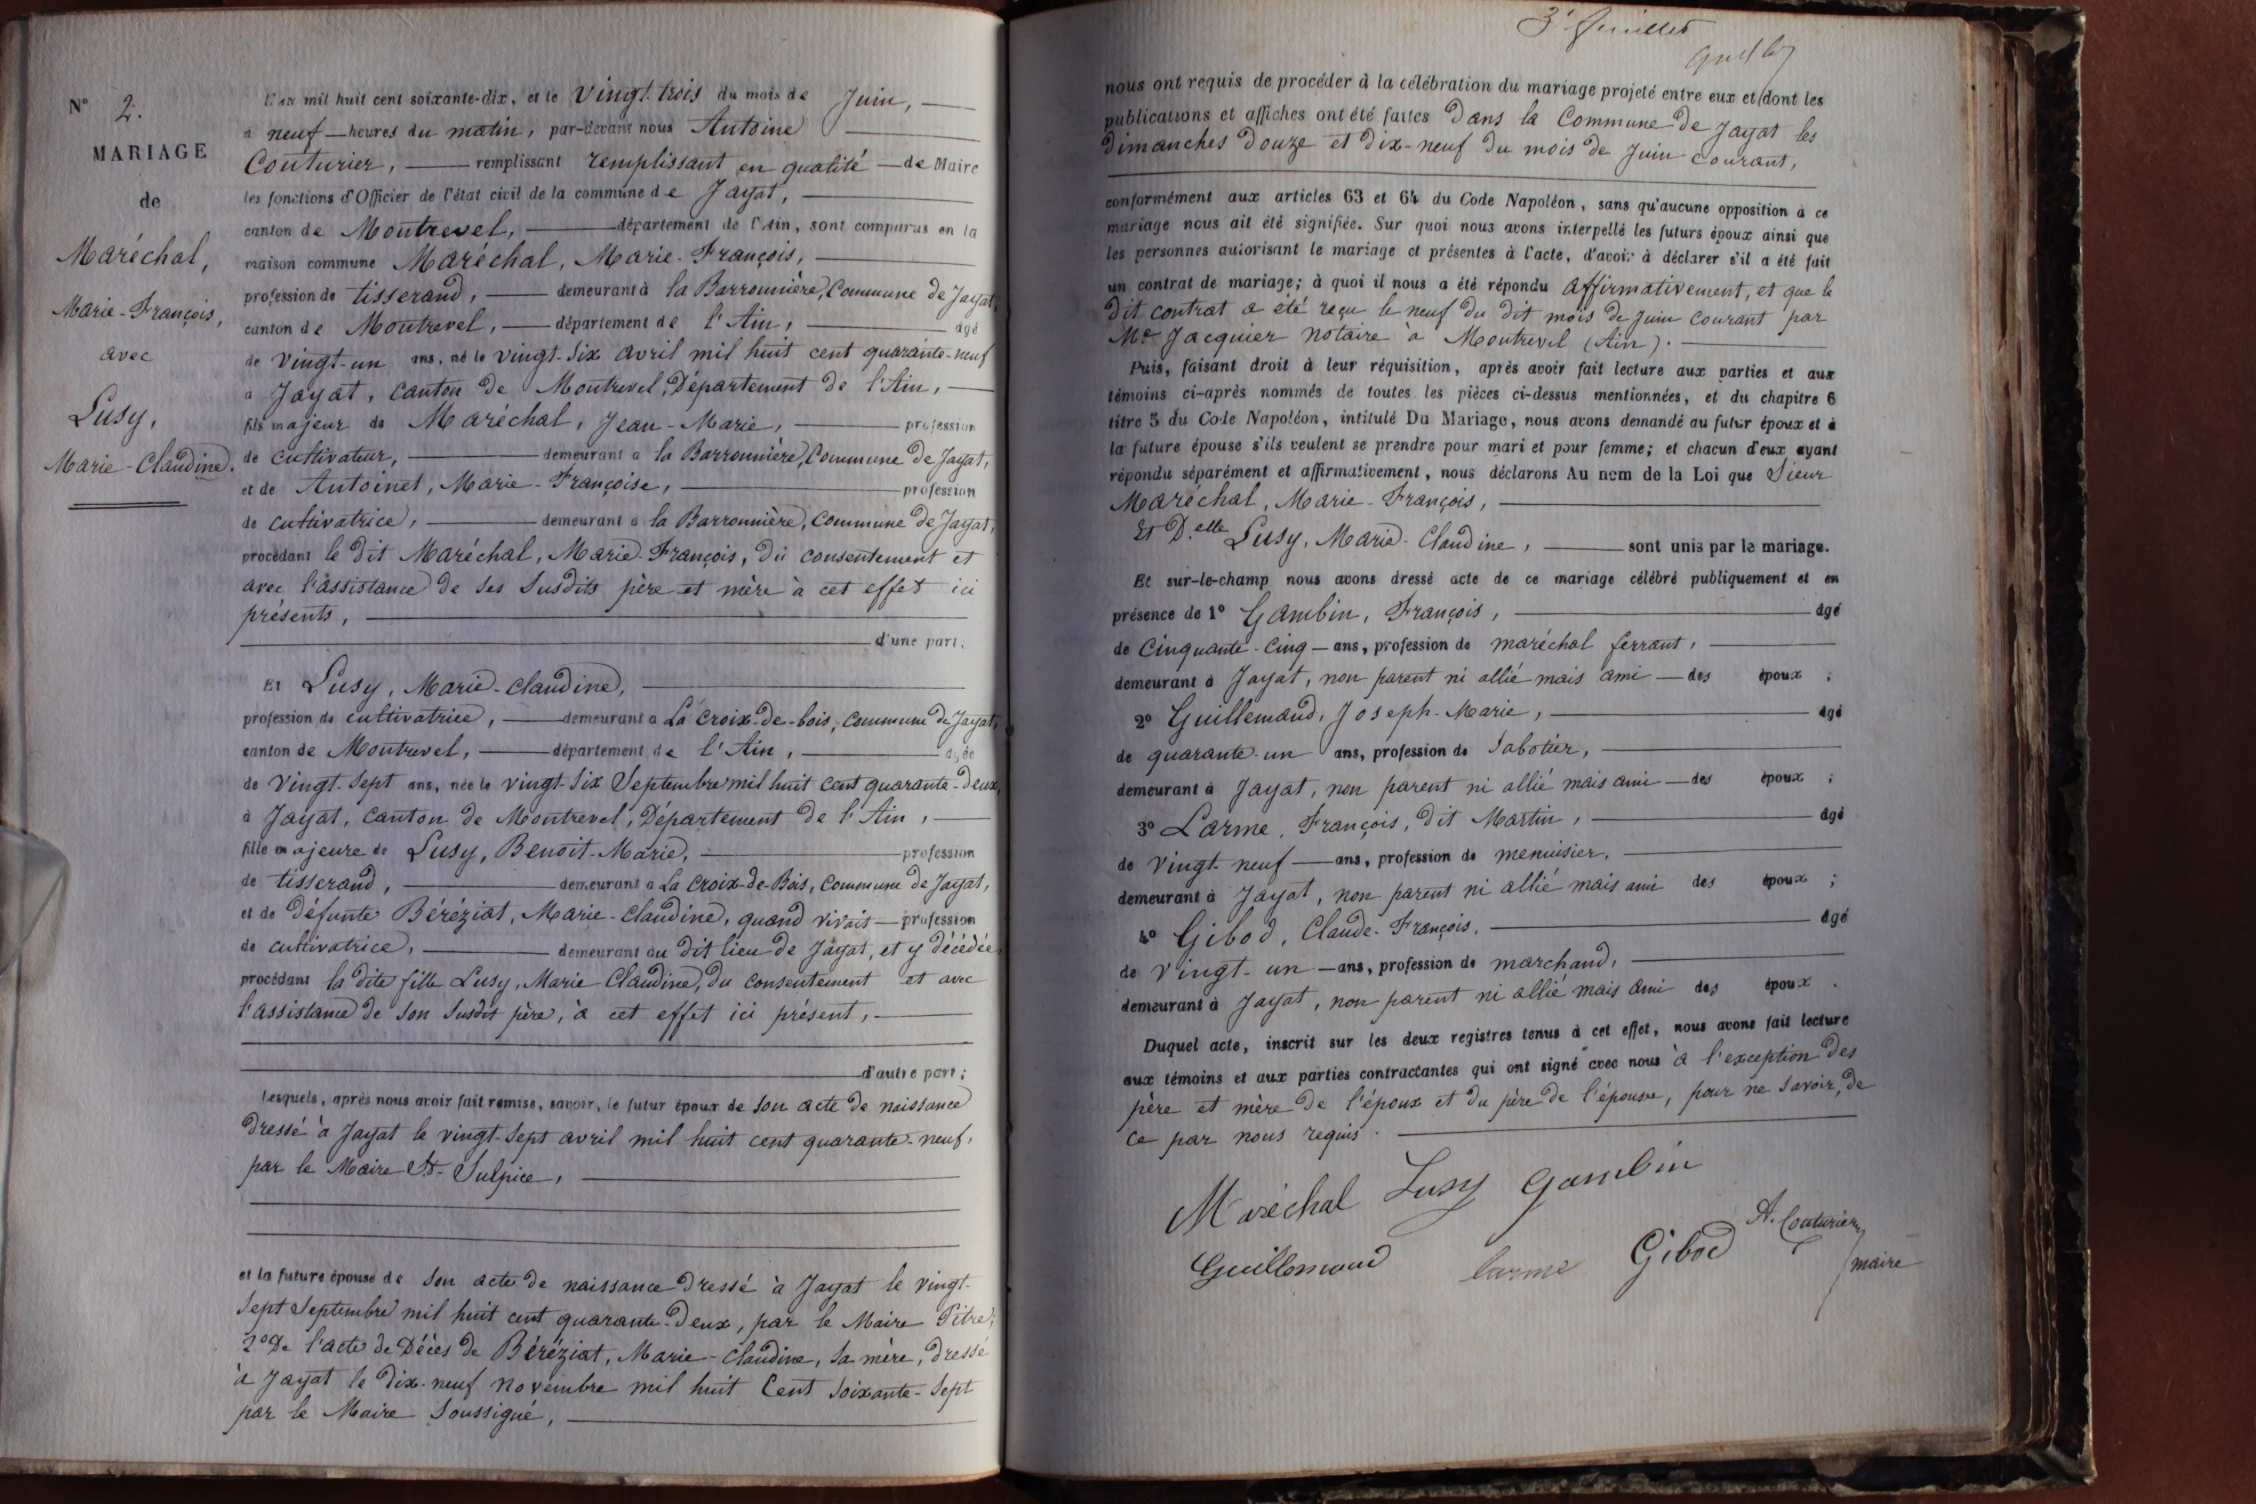 N° 2.
MARIAGE
de
Maréchal,
Marie-François,
avec
Lusy,
Marie-Claudine.
L'an mil huit cent soixante-dix, et le vingt-trois du mois de Juin,
à neuf heures du matin, par-devant nous Antoine
Couturier, remplissant remplissant en qualité de Maire
les fonctions d'Officier de l'état civil de la commune de Jayat,
canton de Montrevel, département de l'Ain, sont comparus en la
maison commune Maréchal, Marie-François,
profession de tisserand, demeurant à la Barronnière, Commune de Jayat,
canton de Montrevel, département de l'Ain, âgé
de vingt-un ans, né le vingt-six avril mil huit cent quarante-neuf
à Jayat, canton de Montrevel, Département de l'Ain,
fils majeur de Maréchal, Jean-Marie, profession
de cultivateur, demeurant à la Barronnière, Commune de Jayat,
et de Antoinet, Marie-Françoise, profession
de cultivatrice, demeurant à la Barronnière, Commune de Jayat,
procédant le dit Maréchal, Marie-François, du consentement et
avec l'assistance de ses susdits père et mère à cet effet ici
présents,
d'une part;
Et Lusy, Marie-Claudine,
profession de cultivatrice, demeurant à La Croix-de-bois, commune de Jayat,
canton de Montrevel, département de l'Ain, âgée
de vingt-sept ans, née le vingt-six Septembre mil huit cent quarante-deux,
à Jayat, canton de Montrevel, Département de l'Ain,
fille majeure de Lusy, Benoit-Marie, profession
de tisserand, demeurant à La Croix-de-Bois, commune de Jayat,
et de défunte Béréziat, Marie-Claudine, quand vivait profession
de cultivatrice, demeurant au dit lieu de Jayat, et y décédée
procédant la dite fille Lusy, Marie Claudine, du consentement et avec
l'assistance de son susdit père, à cet effet ici présent,
d'autre part;
Lesquels, après nous avoir fait remise, savoir, le futur époux de son acte de naissance
dressé à Jayat le vingt-sept avril mil huit cent quarante-neuf,
par le Maire St-Sulpice,
et la future épouse de son acte de naissance dressé à Jayat le vingt-
sept Septembre mil huit cent quarante-deux, par le Maire Pitre;
2° De l'acte de Décès de Béréziat, Marie-Claudine, sa mère, dressé
à Jayat le dix-neuf novembre mil huit cent soixante-sept
par le Maire soussigné,
3e feuillet
nous ont requis de procéder à la célébration du mariage projeté entre eux et dont les
publications et affiches ont été faites dans la Commune de Jayat les
dimanches douze et dix-neuf du mois de Juin courant,
conformément aux articles 63 et 64 du Code Napoléon, sans qu'aucune opposition à ce
mariage nous ait été signifiée. Sur quoi nous avons interpellé les futurs époux ainsi que
les personnes autorisant le mariage et présentes à l'acte, d'avoir à déclarer s'il a été fait
un contrat de mariage; à quoi il nous a été répondu affirmativement, et que le
dit contrat a été reçu le neuf du dit mois de Juin courant par
Me Jacquier notaire à Montrevel (Ain).
Puis, faisant droit à leur réquisition, après avoir fait lecture aux parties et aux
témoins ci-après nommés de toutes les pièces ci-dessus mentionnées, et du chapitre 6
titre 5 du Code Napoléon, intitulé Du Mariage, nous avons demandé au futur époux et à
la future épouse s'ils veulent se prendre pour mari et pour femme; et chacun d'eux ayant
répondu séparément et affirmativement, nous déclarons Au nom de la Loi que Sieur
Maréchal, Marie-François,
Et D.elle Lusy, Marie-Claudine, sont unis par le mariage.
Et sur-le-champ nous avons dressé acte de ce mariage célébré publiquement et en
présence de 1° Gambin, François, âgé
de cinquante-cinq ans, profession de maréchal ferrant,
demeurant à Jayat, non parent ni allié mais ami des époux;
2° Guillemaud, Joseph-Marie, âgé
de quarante-un ans, profession de sabotier,
demeurant à Jayat, non parent ni allié mais ami des époux;
3° Larme, François, dit Martin, âgé
de vingt-neuf ans, profession de menuisier,
demeurant à Jayat, non parent ni allié mais ami des époux;
4° Gibod, Claude-François, âgé
de vingt-un ans, profession de marchand,
demeurant à Jayat, non parent ni allié mais ami des époux.
Duquel acte, inscrit sur les deux registres tenus à cet effet, nous avons fait lecture
aux témoins et aux parties contractantes qui ont signé avec nous à l'exception des
père et mère de l'époux et du père de l'épouse, pour ne savoir, de
ce par nous requis.
Maréchal Lusy Gambin
Guillemaud larme Gibod A. Couturier
maire